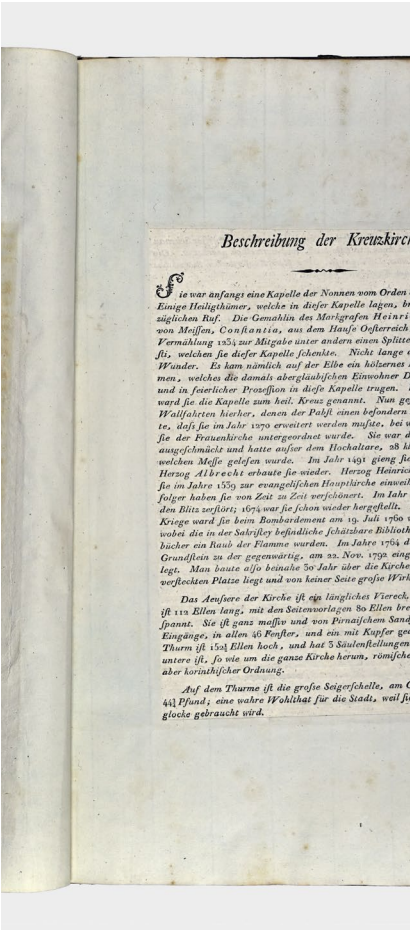 Beschreibung der Kreuzkirch
Sie war anfangs eine Kapelle der Nonnen vom Orden
Einige Heiligthümer, welche in dieſer Kapelle lagen, br
züglichen Ruf. Die Gemahlin des Markgrafen Heinri
von Meiſſen, Conſtantia, aus dem Hauſe Oeſterreich
Vermählung 1234 zur Mitgabe unter andern einen Splitte
ſti, welchen ſie dieſer Kapelle ſchenkte. Nicht lange
Wunder. Es kam nämlich auf der Elbe ein hölzernes
men, welches die damals abergläubiſchen Einwohner D
und in feierlicher Prozeſſion in dieſe Kapelle trugen.
ward ſie die Kapelle zum heil. Kreuz genannt. Nun ge
Wallfahrten hierher, denen der Pabſt einen beſondern
te, daſs ſie im Jahr 1270 erweitert werden muſste, bei w
ſie der Frauenkirche untergeordnet wurde. Sie war d
ausgeſchmückt und hatte auſser dem Hochaltare, 28 kl
welchen Meſſe geleſen wurde. Im Jahr 1491 gieng ſie
Herzog Albrecht erbaute ſie wieder. Herzog Heinrich
ſie im Jahre 1539 zur evangeliſchen Hauptkirche einweih
folger haben ſie von Zeit zu Zeit verſchönert. Im Iahr
den Blitz zerſtört; 1674 war ſie ſchon wieder hergeſtellt.
Kriege ward ſie beim Bombardement am 19. Juli 1760
wobei die in der Sakriſtey befindliche ſchätzbare Biblioth
bücher ein Raub der Flamme wurden. Im Jahre 1764 d
Grundſtein zu der gegenwärtig, am 22. Nov. 1792 eing
legt. Man baute alſo beinahe 30 Jahr über die Kirche
verſteckten Platze liegt und von keiner Seite groſse Wirk
Das Aeuſsere der Kirche iſt ein längliches Viereck,
iſt 112 Ellen lang, mit den Seitenvorlagen 80 Ellen bre
ſpannt. Sie iſt ganz maſſiv und von Pirnaiſchem Sand
Eingänge, in allen 46 Fenſter, und ein mit Kupfer ge
Thurm iſt 152½ Ellen hoch, und hat 3 Säulenſtellungen
untere iſt, ſo wie um die ganze Kirche herum, römiſche
aber korinthiſcher Ordnung.
Auf dem Thurme iſt die groſse Seigerſchelle, am G
Pfund; eine wahre Wohlthat für die Stadt, weil ſi
glocke gebraucht wird.